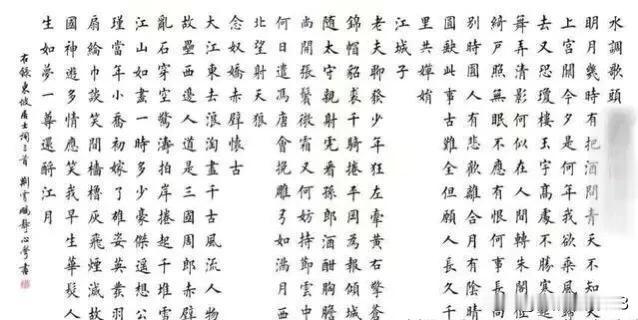 水調歌頭
明月幾時有把酒問青天不知天
上宮闕今夕是何年我欲乘風歸
去又恐瓊樓玉宇高處不勝寒起
舞弄清影何似在人間轉朱閣低
綺戶照無眠不應有恨何事長向
別時圓人有悲歡離合月有陰晴
圓缺此事古難全但願人長久千
里共嬋娟
江城子
老夫聊發少年狂左牽黃右擎蒼
錦帽貂裘千騎捲平岡為報傾城
隨太守親射虎看孫郎酒酣胸膽
尚開張鬢微霜又何妨持節雲中
何日遣馮唐會挽雕弓如滿月西
北望射天狼
念奴嬌赤壁懷古
大江東去浪淘盡千古風流人物
故壘西邊人道是三國周郎赤壁
亂石穿空驚濤拍岸捲起千堆雪
江山如畫一時多少豪傑遙想公
瑾當年小喬初嫁了雄姿英發羽
扇綸巾談笑間檣櫓灰飛煙滅故
國神遊多情應笑我早生華髮人
生如夢一尊還酹江月
右錄東坡居士詞三首 劉雲鵬靜心書